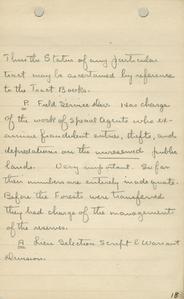 Thus the Status of any particular
tract may be ascertained by reference
to the Tract Books.
P. Field Service Div. Has charge
of the work of Special Agents who ex-
amine fraudulent entries, thefts, and
depredations on the unreserved public
lands. Very important. So far
their numbers are entirely inadequate.
Before the Forests were transferred
they had charge of the management
of the reserves.
Lieu Selection Script & Warrant
Division.
18